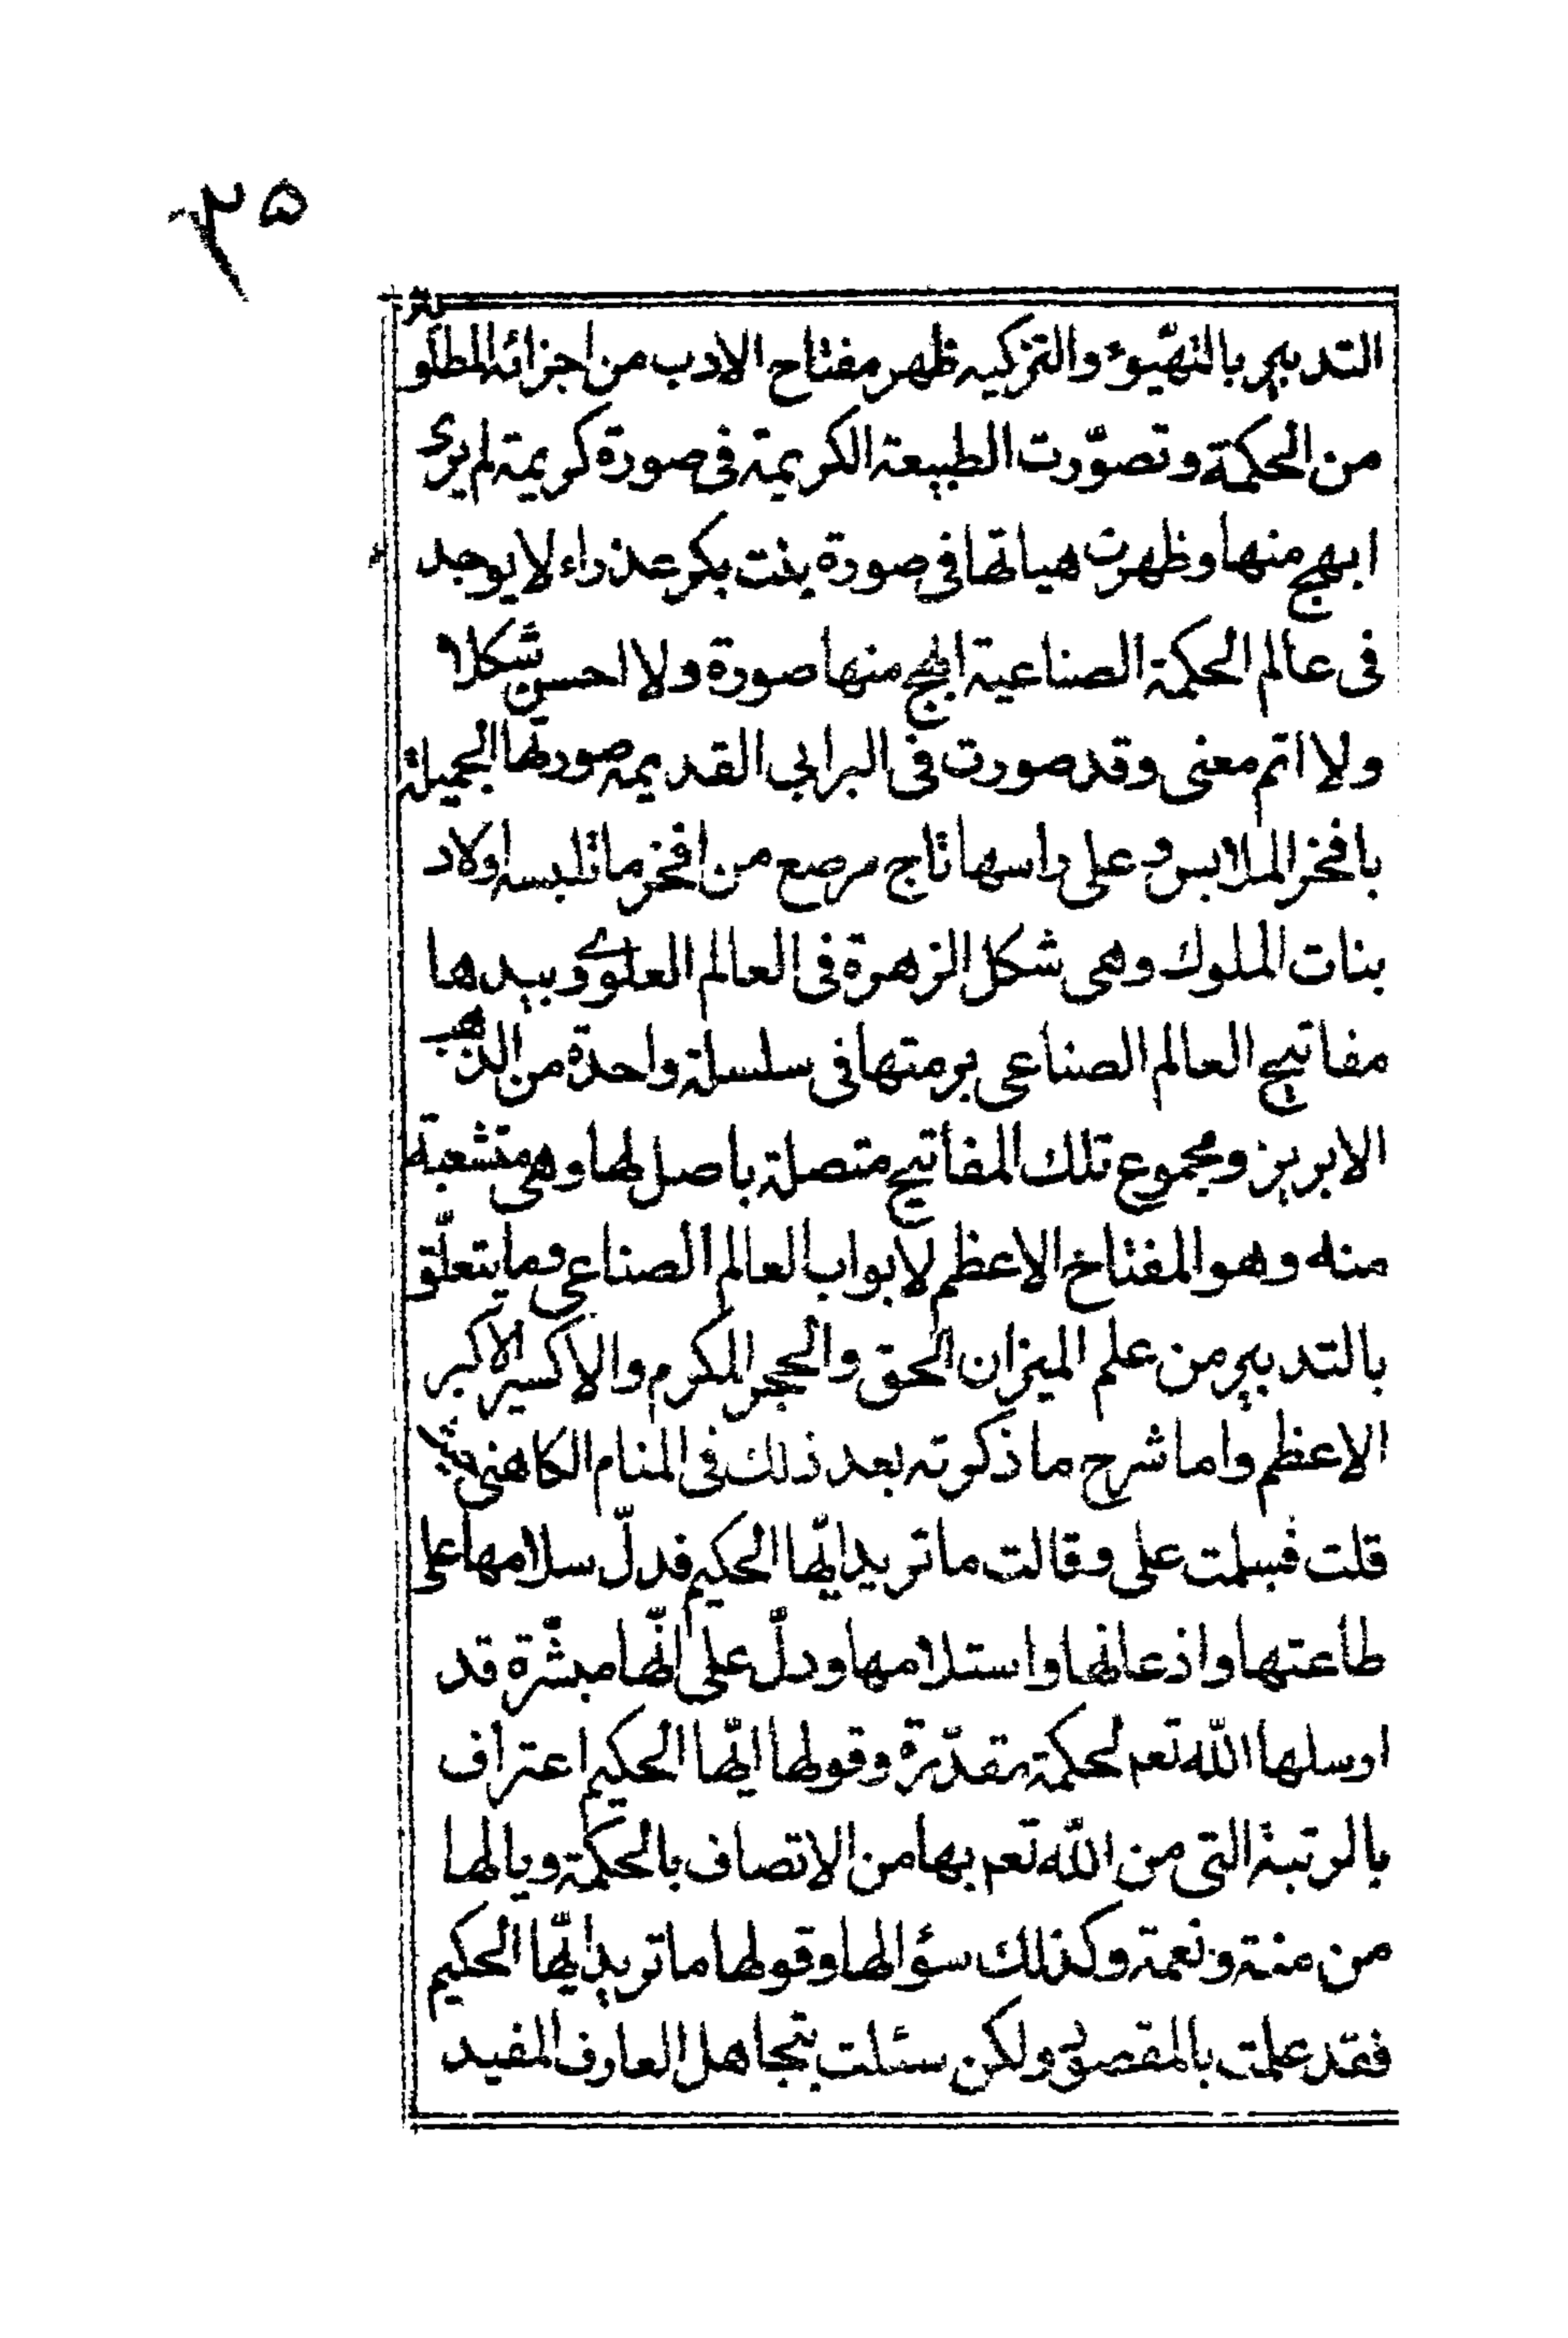 ٣٥
التدبير بالتهيوء والتزكيه ظهر مفتاح الادب من اجزائه المطلوبة
من الحكمة وتصوّرت الطبيعة الكريمة فى صورة كريمة لم يرى
ابهج منها وظهرت هياتها فى صورة بنت بكر عذراء لا يوجد
فى عالم الحكمة الصناعية ابهج منها صورة ولا احسن شكلا
ولا اتم معنى وقد صورت فى البرابي القديمه صورتها الجميلة
بافخر الملابس وعلى راسها تاج مرصع من افخر ما تلبسه اولاد
بنات الملوك وهى شكل الزهرة فى العالم العلوے وبيدها
مفاتيح العالم الصناعى برمتها فى سلسلة واحدة من الذهب
الابريز ومجموع تلك المفاتيح متصلة باصل لها وهى متشعبة
منه وهو المفتاح الاعظم لابواب العالم الصناعى وما يتعلّق
بالتدبير من علم الميزان الحق والحجر المكرم والاكسير الاكبر
الاعظم واما شرح ما ذكرته بعد ذلك فى المنام الكاهنى
قلت فسلمت على وقالت ما تريد ايّها الحكيم فدلّ سلامها على
طاعتها واذعانها واستلامها ودلّ على انّها مبشّرة قد
ارسلها اللّه تعم لحكمة مقدّرة وقولها ايّها الحكيم اعتراف
بالرتبة التى من اللّه تعم بها من الاتصاف بالحكمة ويالها
من منة ونعمة وكذلك سؤالها وقولها ما تريد ايّها الحكيم
فقد علمت بالمقصود ولكن سئلت بتجاهل العارف المفيد